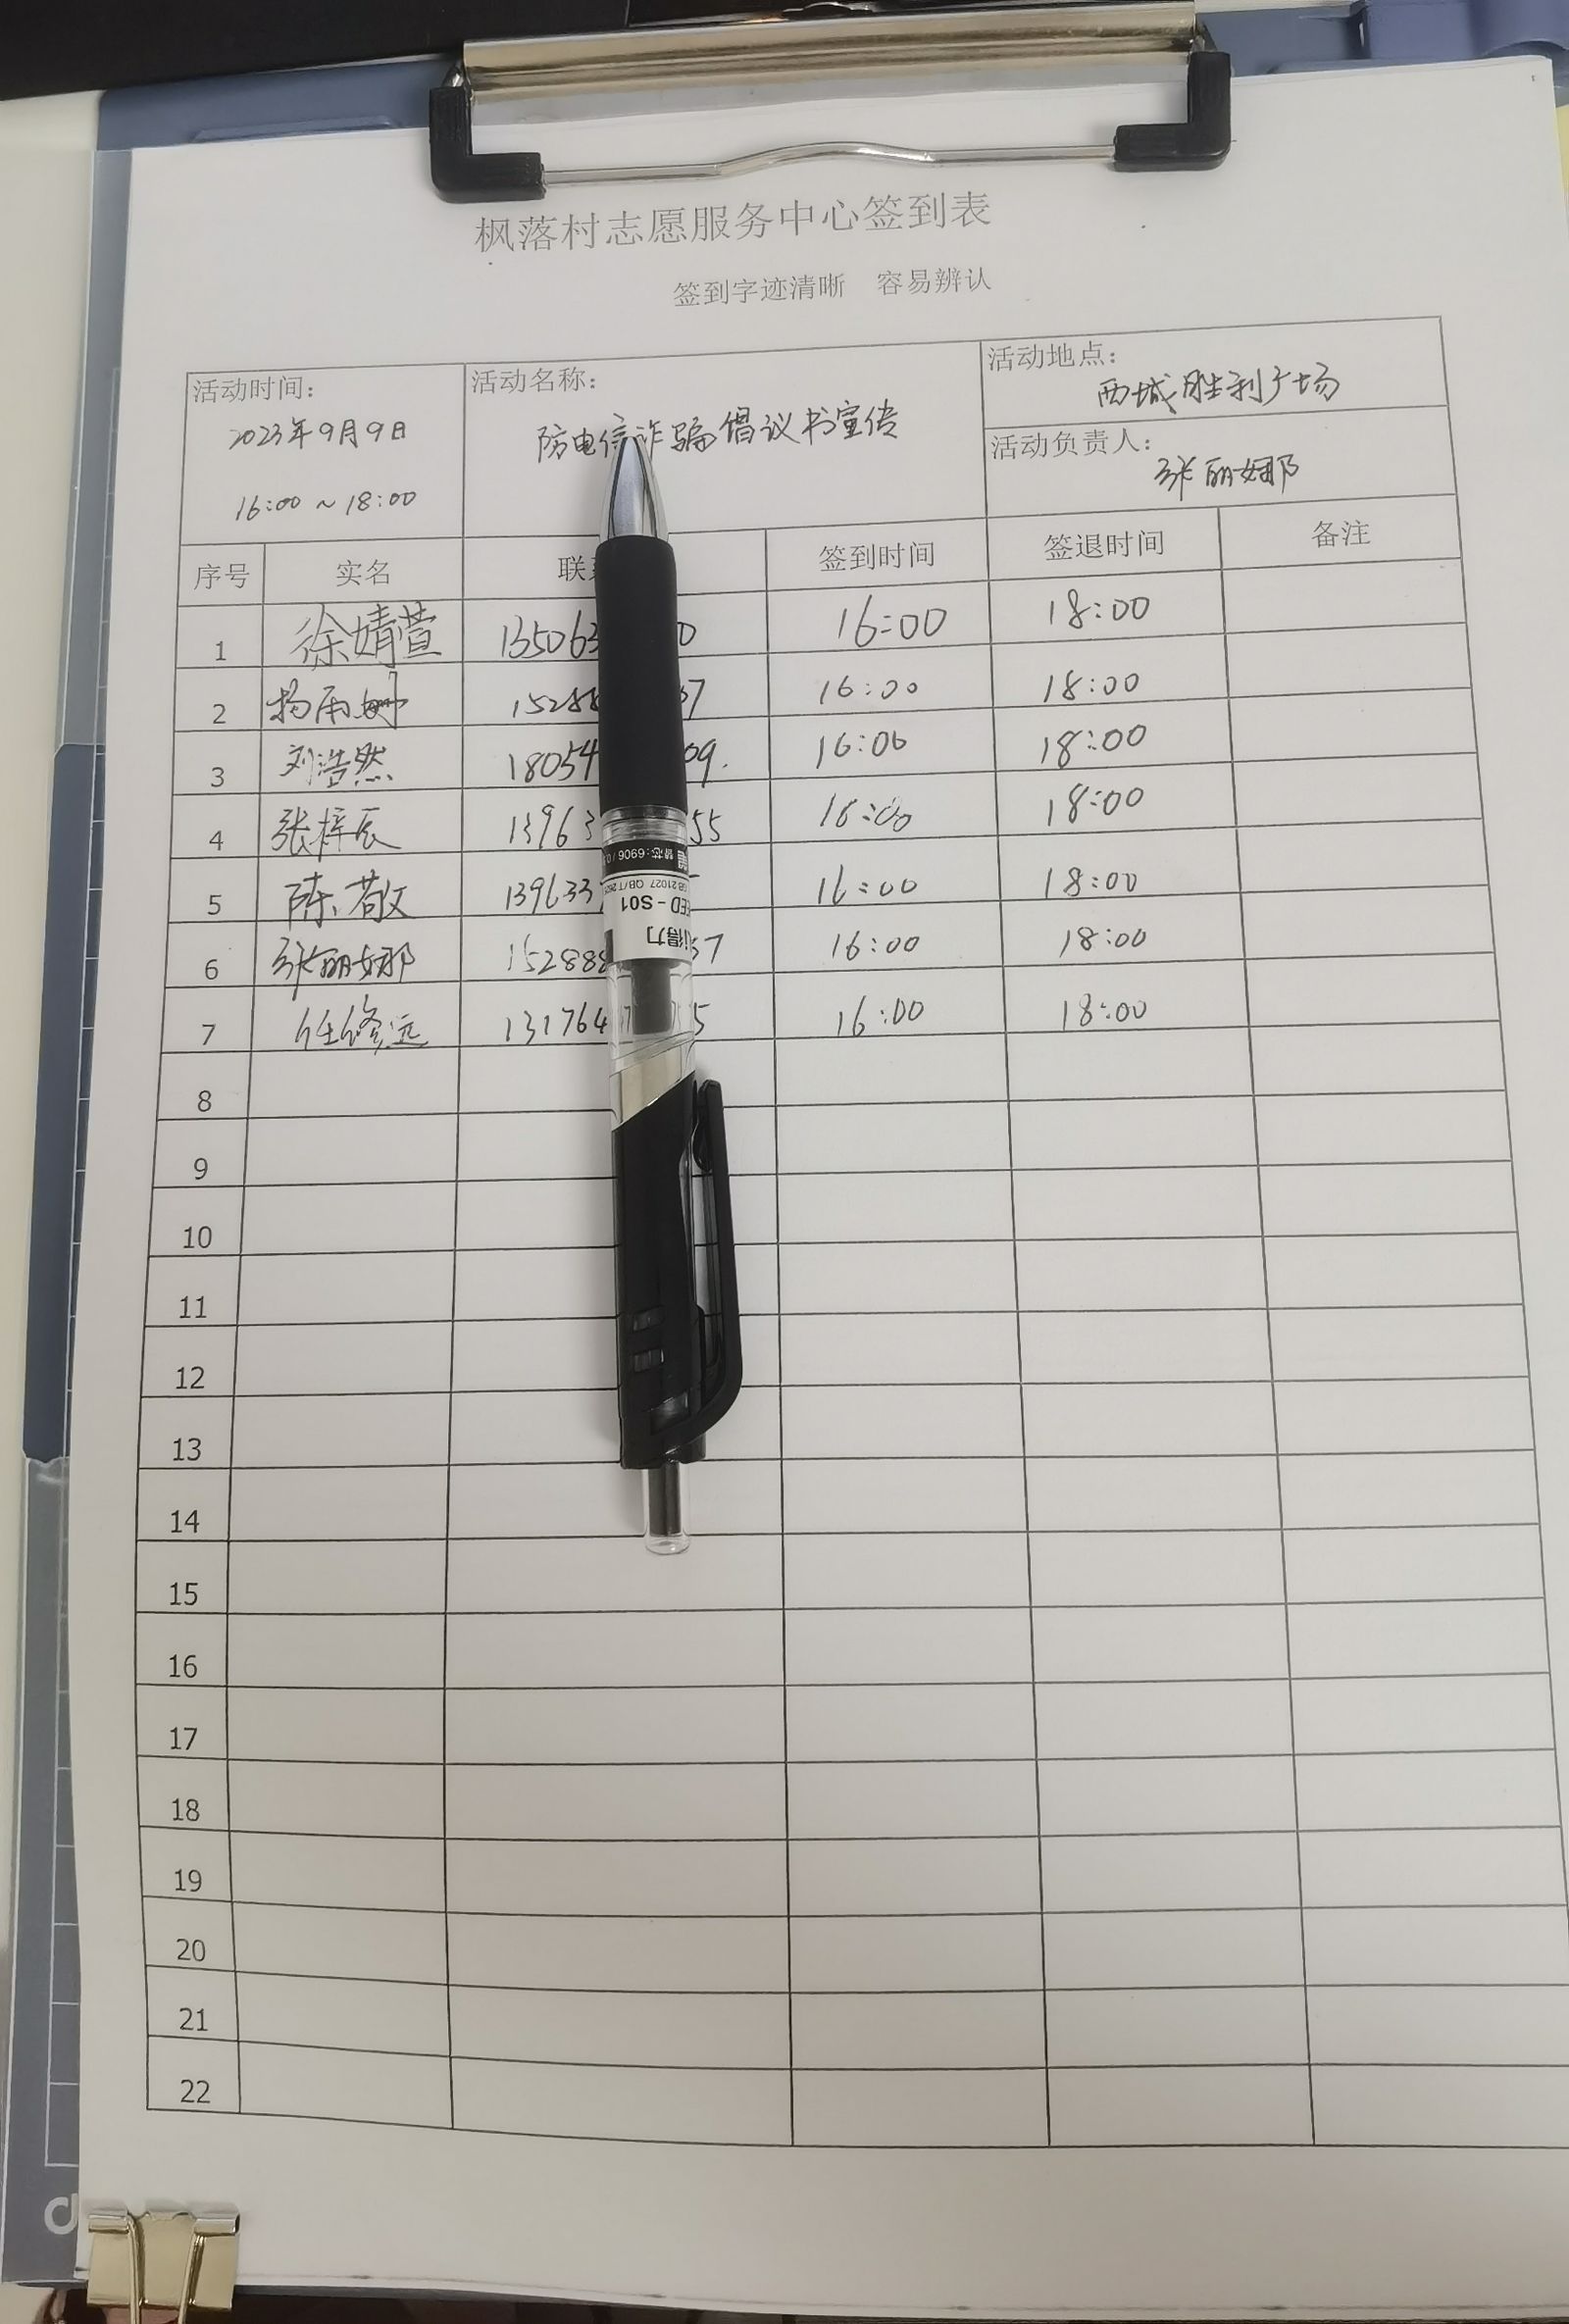 枫落村志愿服务中心签到表
签到字迹清晰 容易辨认
活动时间: 2023年9月9日 16:00~18:00
活动名称: 防电信诈骗倡议书宣传
活动地点: 西城胜利广场
活动负责人: 张丽娜
序号 实名 联 签到时间 签退时间 备注
1 徐婧萱 135063 0 16:00 18:00
2 杨雨姗 15288 37 16:00 18:00
3 刘浩然 18054 09. 16:00 18:00
4 张梓辰 13963 55 16:00 18:00
5 陈敬 139633 16:00 18:00
6 张丽娜 152888 37 16:00 18:00
7 任修远 131764 5 16:00 18:00
8
9
10
11
12
13
14
15
16
17
18
19
20
21
22
替芯:6906/0.
GB 21027 QB/T
S01
得力
d